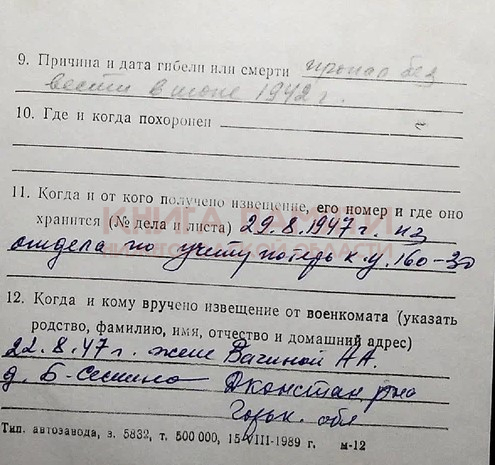 9. Причина и дата гибели или смерти пропал без
вести в июне 1942 г.
10. Где и когда похоронен
11. Когда и от кого получено извещение, его номер и где оно
хранится (№ дела и листа) 29.8.1947 г. из
КНИГА ПАМЯТИ
НИЖЕГОРОДСКОЙ ОБЛАСТИ
отдела по учету потерь к.у. 160-30
12. Когда и кому вручено извещение от военкомата (указать
родство, фамилию, имя, отчество и домашний адрес)
22.8.47 г. жене Вагиной А А.
д. Б-Сескино Дконстан р-на
Горьк. обл
Тип. автозавода, з. 5832, т. 500 000, 15-VIII-1989 г. м-12